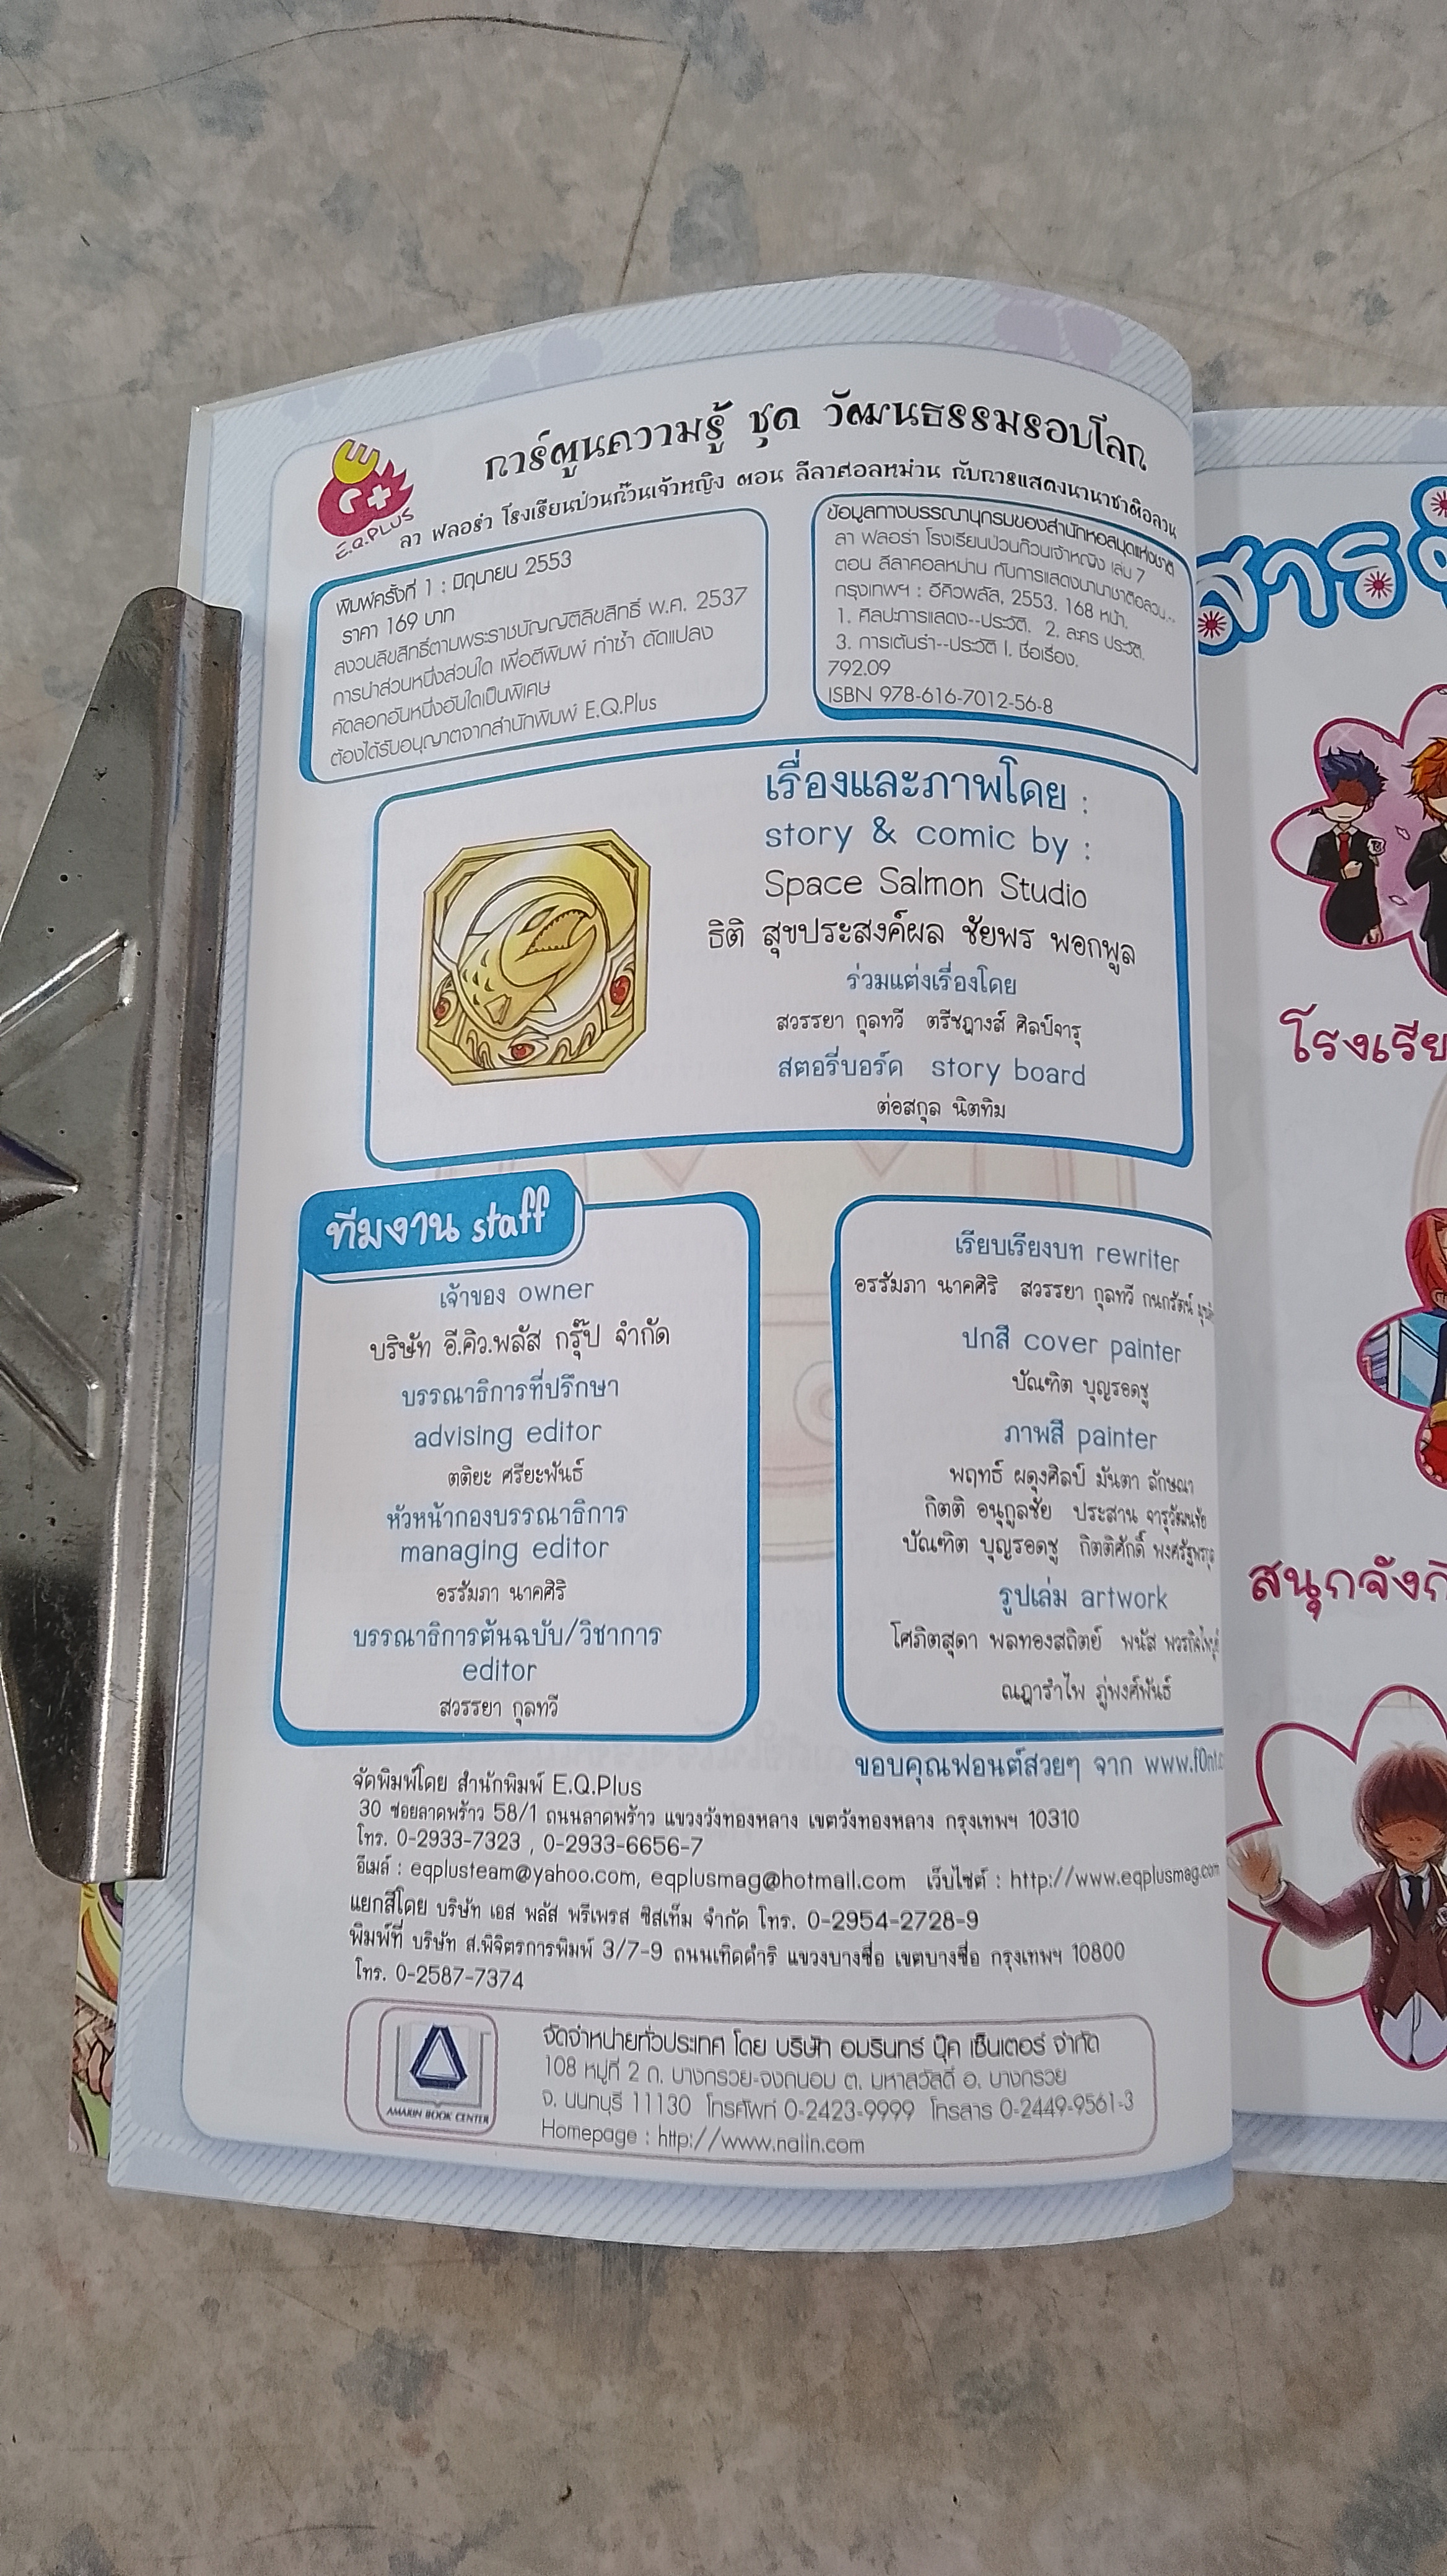 E.Q.PLUS
การ์ตูนความรู้ ชุด วัฒนธรรมรอบโลก
ลา ฟลอร่า โรงเรียนป่วนก๊วนเจ้าหญิง ตอน ลีลาศอลหม่าน กับการแสดงนานาชาติอลวน
พิมพ์ครั้งที่ 1 : มิถุนายน 2553
ราคา 169 บาท
สงวนลิขสิทธิ์ตามพระราชบัญญัติลิขสิทธิ์ พ.ศ. 2537
การนำส่วนหนึ่งส่วนใด เพื่อตีพิมพ์ ทำซ้ำ ดัดแปลง
คัดลอกอันหนึ่งอันใดเป็นพิเศษ
ต้องได้รับอนุญาตจากสำนักพิมพ์ E.Q.Plus
ข้อมูลทางบรรณานุกรมของสำนักหอสมุดแห่งชาติ
ลา ฟลอร่า โรงเรียนป่วนก๊วนเจ้าหญิง เล่ม 7
ตอน ลีลาศอลหม่าน กับการแสดงนานาชาติอลวน.--
กรุงเทพฯ : อีคิวพลัส, 2553. 168 หน้า.
1. ศิลปะการแสดง--ประวัติ. 2. ละคร ประวัติ.
3. การเต้นรำ--ประวัติ I. ชื่อเรื่อง.
792.09
ISBN 978-616-7012-56-8
เรื่องและภาพโดย :
story & comic by :
Space Salmon Studio
ธิติ สุขประสงค์ผล ชัยพร พอกพูล
ร่วมแต่งเรื่องโดย
สวรรยา กุลทวี ตรีชฎางส์ ศิลป์จารุ
สตอรี่บอร์ด story board
ต่อสกุล นิตทิม
ทีมงาน staff
เจ้าของ owner
บริษัท อี.คิว.พลัส กรุ๊ป จำกัด
บรรณาธิการที่ปรึกษา
advising editor
ตติยะ ศรียะพันธ์
หัวหน้ากองบรรณาธิการ
managing editor
อรรัมภา นาคศิริ
บรรณาธิการต้นฉบับ/วิชาการ
editor
สวรรยา กุลทวี
เรียบเรียงบท rewriter
อรรัมภา นาคศิริ สวรรยา กุลทวี กนกรัตน์
ปกสี cover painter
บัณฑิต บุญรอดชู
ภาพสี painter
พฤทธ์ ผดุงศิลป์ มันตา ลักษณา
กิตติ อนุกูลชัย ประสาน จารุวัฒนชัย
บัณฑิต บุญรอดชู กิตติศักดิ์
รูปเล่ม artwork
โศภิตสุดา พลทองสถิตย์ พนัส
ณฎารำไพ ภู่พงศ์พันธ์
ขอบคุณฟอนต์สวยๆ จาก www.f0nt.c
จัดพิมพ์โดย สำนักพิมพ์ E.Q.Plus
30 ซอยลาดพร้าว 58/1 ถนนลาดพร้าว แขวงวังทองหลาง เขตวังทองหลาง กรุงเทพฯ 10310
โทร. 0-2933-7323 , 0-2933-6656-7
อีเมล์ : eqplusteam@yahoo.com, eqplusmag@hotmail.com เว็บไซต์ : http://www.eqplusmag.com
แยกสีโดย บริษัท เอส พลัส พรีเพรส ซิสเท็ม จำกัด โทร. 0-2954-2728-9
พิมพ์ที่ บริษัท ส.พิจิตรการพิมพ์ 3/7-9 ถนนเทิดดำริ แขวงบางซื่อ เขตบางซื่อ กรุงเทพฯ 10800
โทร. 0-2587-7374
AMARIN BOOK CENTER
จัดจำหน่ายทั่วประเทศ โดย บริษัท อมรินทร์ บุ๊ค เซ็นเตอร์ จำกัด
108 หมู่ที่ 2 ถ. บางกรวย-จงถนอม ต. มหาสวัสดิ์ อ. บางกรวย
จ. นนทบุรี 11130 โทรศัพท์ 0-2423-9999 โทรสาร 0-2449-9561-3
Homepage : http://www.naiin.com
สาร
โรงเรีย
สนุกจังก